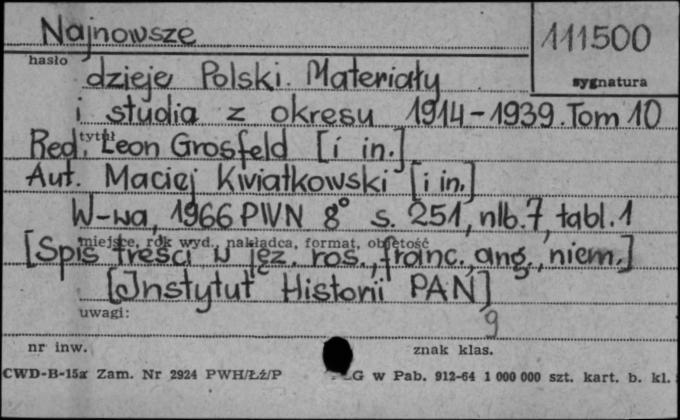 Najnowsze
111500
hasło
sygnatura
dzieje Polski. Materiały
i studia z okresu 1914-1939. Tom 10
tytuł
Red. Leon Grosfeld [i in.]
Aut. Maciej Kwiatkowski [i in.]
W-wa, 1966 PWN 8° s. 251, nlb. 7, tabl. 1
miejsce, rok wyd., nakładca, format, objętość
[Spis treści w jęz. ros., franc., ang., niem.]
[Instytut Historii PAN]
uwagi:
9
nr inw.
znak klas.
CWD-B-15a Zam. Nr 2924 PWH/Łź/P
G w Pab. 912-64 1 000 000 szt. kart. b. kl.